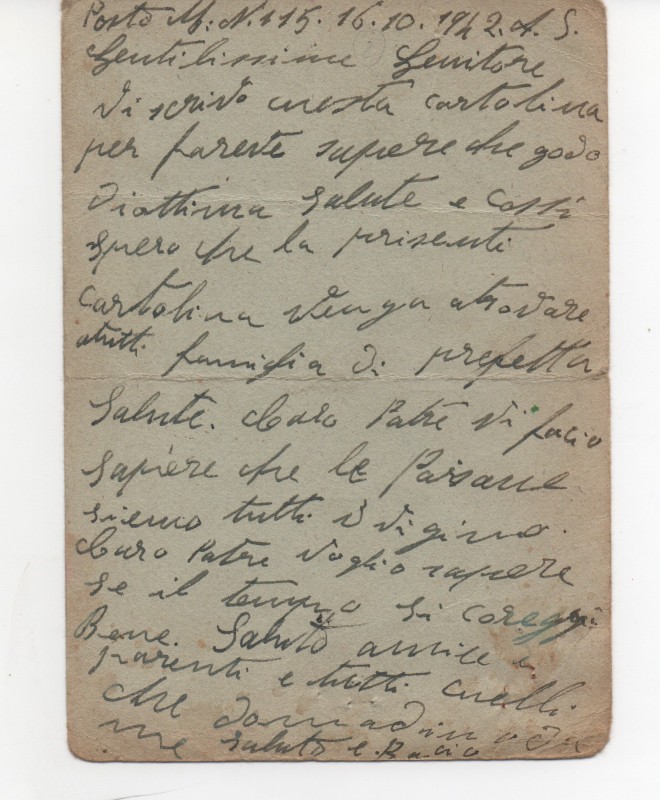 Posta M. N. 115. 16. 10. 1942. A. S.
Gentilissime Genitore
Vi scrivo cuesta cartolina
per farevi sapere che godo
di ottima salute e cossi
spero che la prisenti
cartolina venga atrovare
atutti famiglia di prefetta
salute. Charo Patre vi facio
sapere che le Paisane
siemo tutti
Charo Patre voglio sapere
se il tempo si coreggi
Bene. Saluto amice e
parenti e tutti cuelli
che domadino di
me Saluto e Bacio